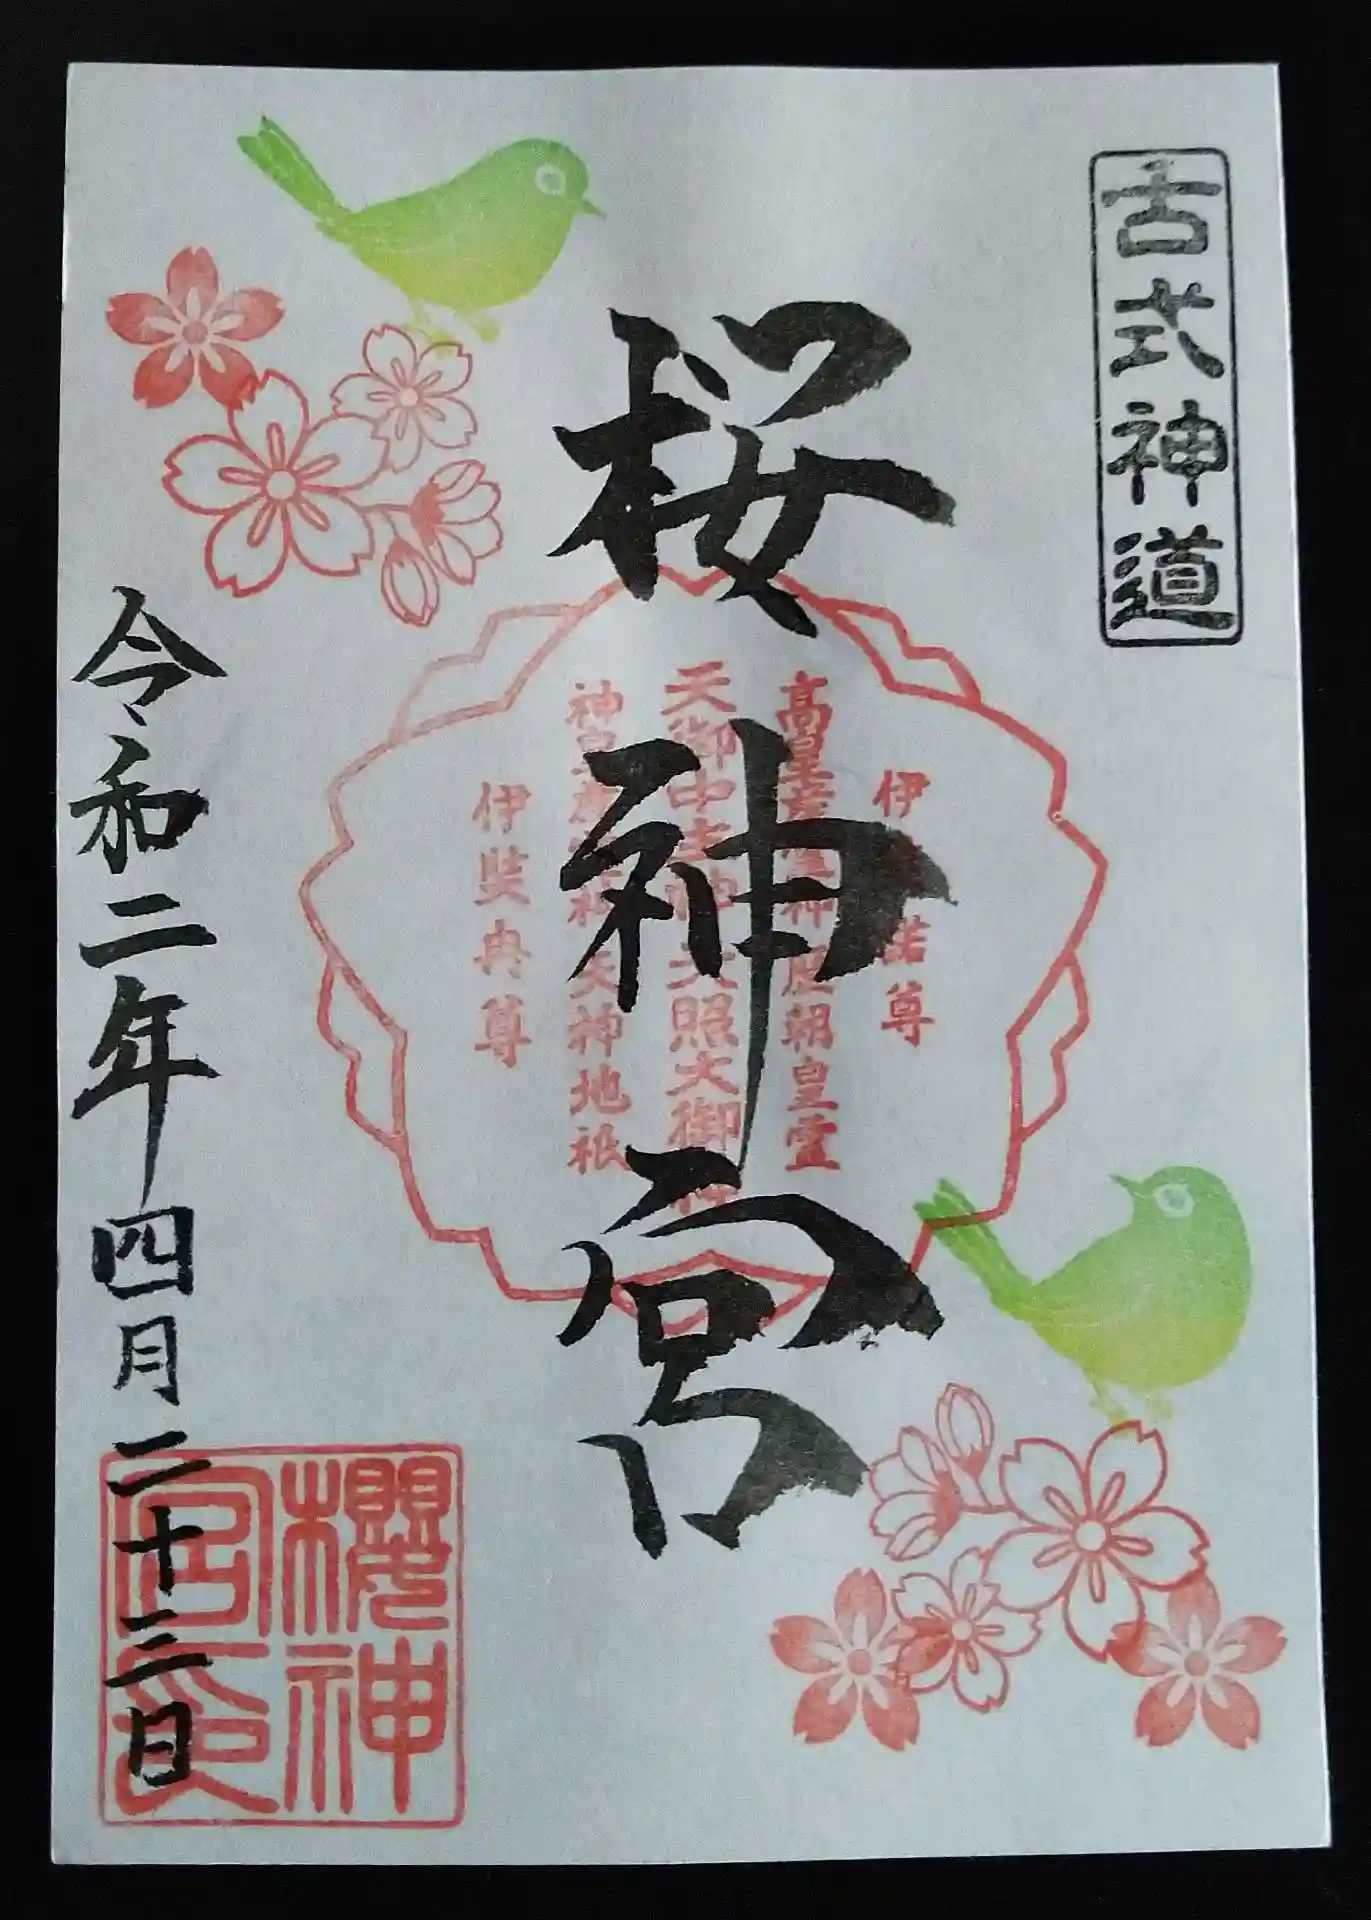 古式神道
桜神宮
伊 諾尊
高皇産 神歴朝皇霊
天御中主神 天照大御神
神 産 天神地祇
伊弉冉尊
令和二年四月二十三日
櫻神
宮印